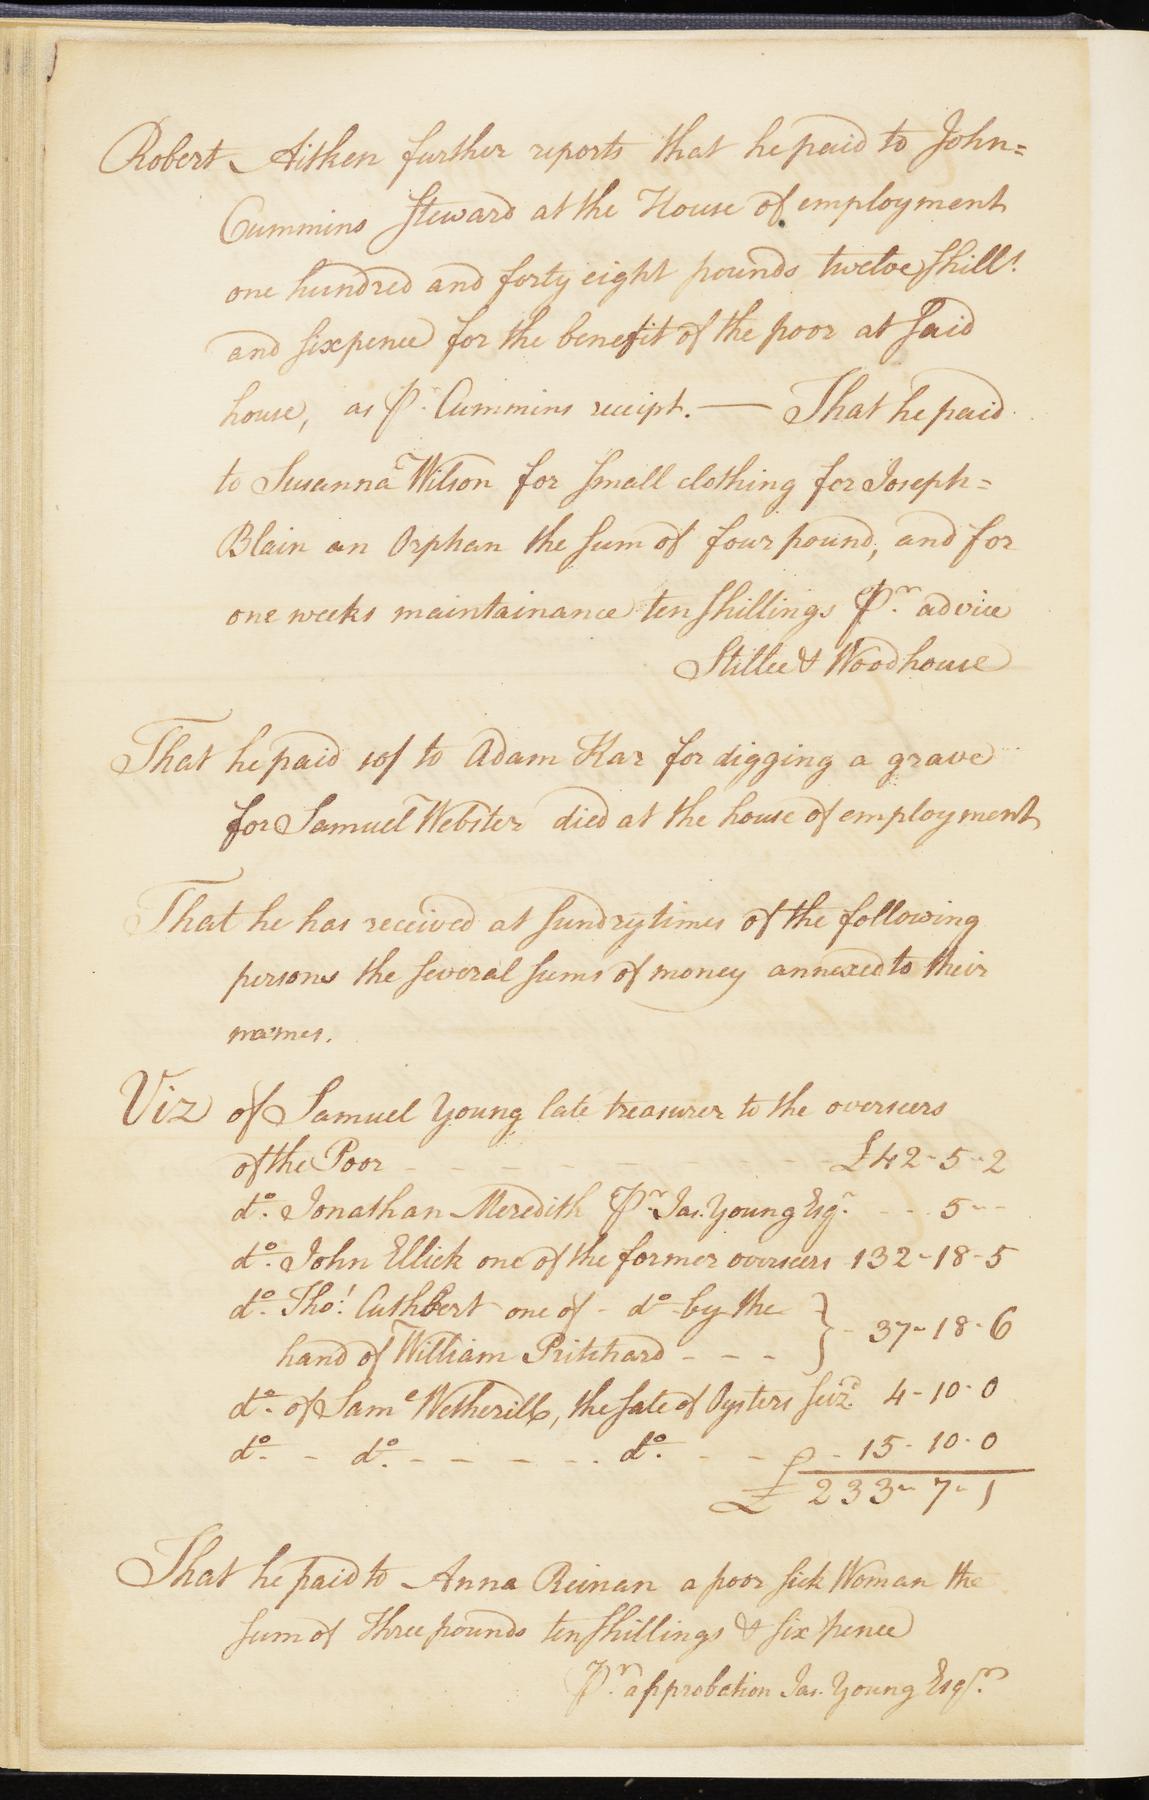 Robert Aitken further reports that he paid to John=
Cummins Steward at the House of employment
one hundred and forty eight pounds twelve shills.
and sixpence for the benefit of the poor at said
house, as Pr. Cummins receipt. — That he paid
to Susanna Wilson for small clothing for Joseph=
Blain an Orphan the sum of four pound, and for
one weeks maintainance ten shillings Pr. advice
Stillee & Woodhouse
That he paid 10/ to Adam Kar for digging a grave
for Samuel Webster died at the house of employment
That he has received at sundry times of the following
persons the several sums of money annexed to their
names.
Viz of Samuel Young late treasurer to the overseers
of the Poor - - - - - - - - - £42-5-2
do. Jonathan Meredith Pr. Jas. Young Esqr. - - - 5 - -
do. John Ellick one of the former overseers 132-18-5
do. Thos. Cuthbert one of - do by the
hand of William Pritchard - - - } - 37-18-6
do. of Saml Wetherill, the sale of Oysters seizd. 4-10-0
do. - do. - - - - - do. - - - 15-10-0
£ 233-7-1
That he paid to Anna Reinan a poor sick Woman the
sum of three pounds ten shillings & six pence
Pr. approbation Jas. Young Esqr.